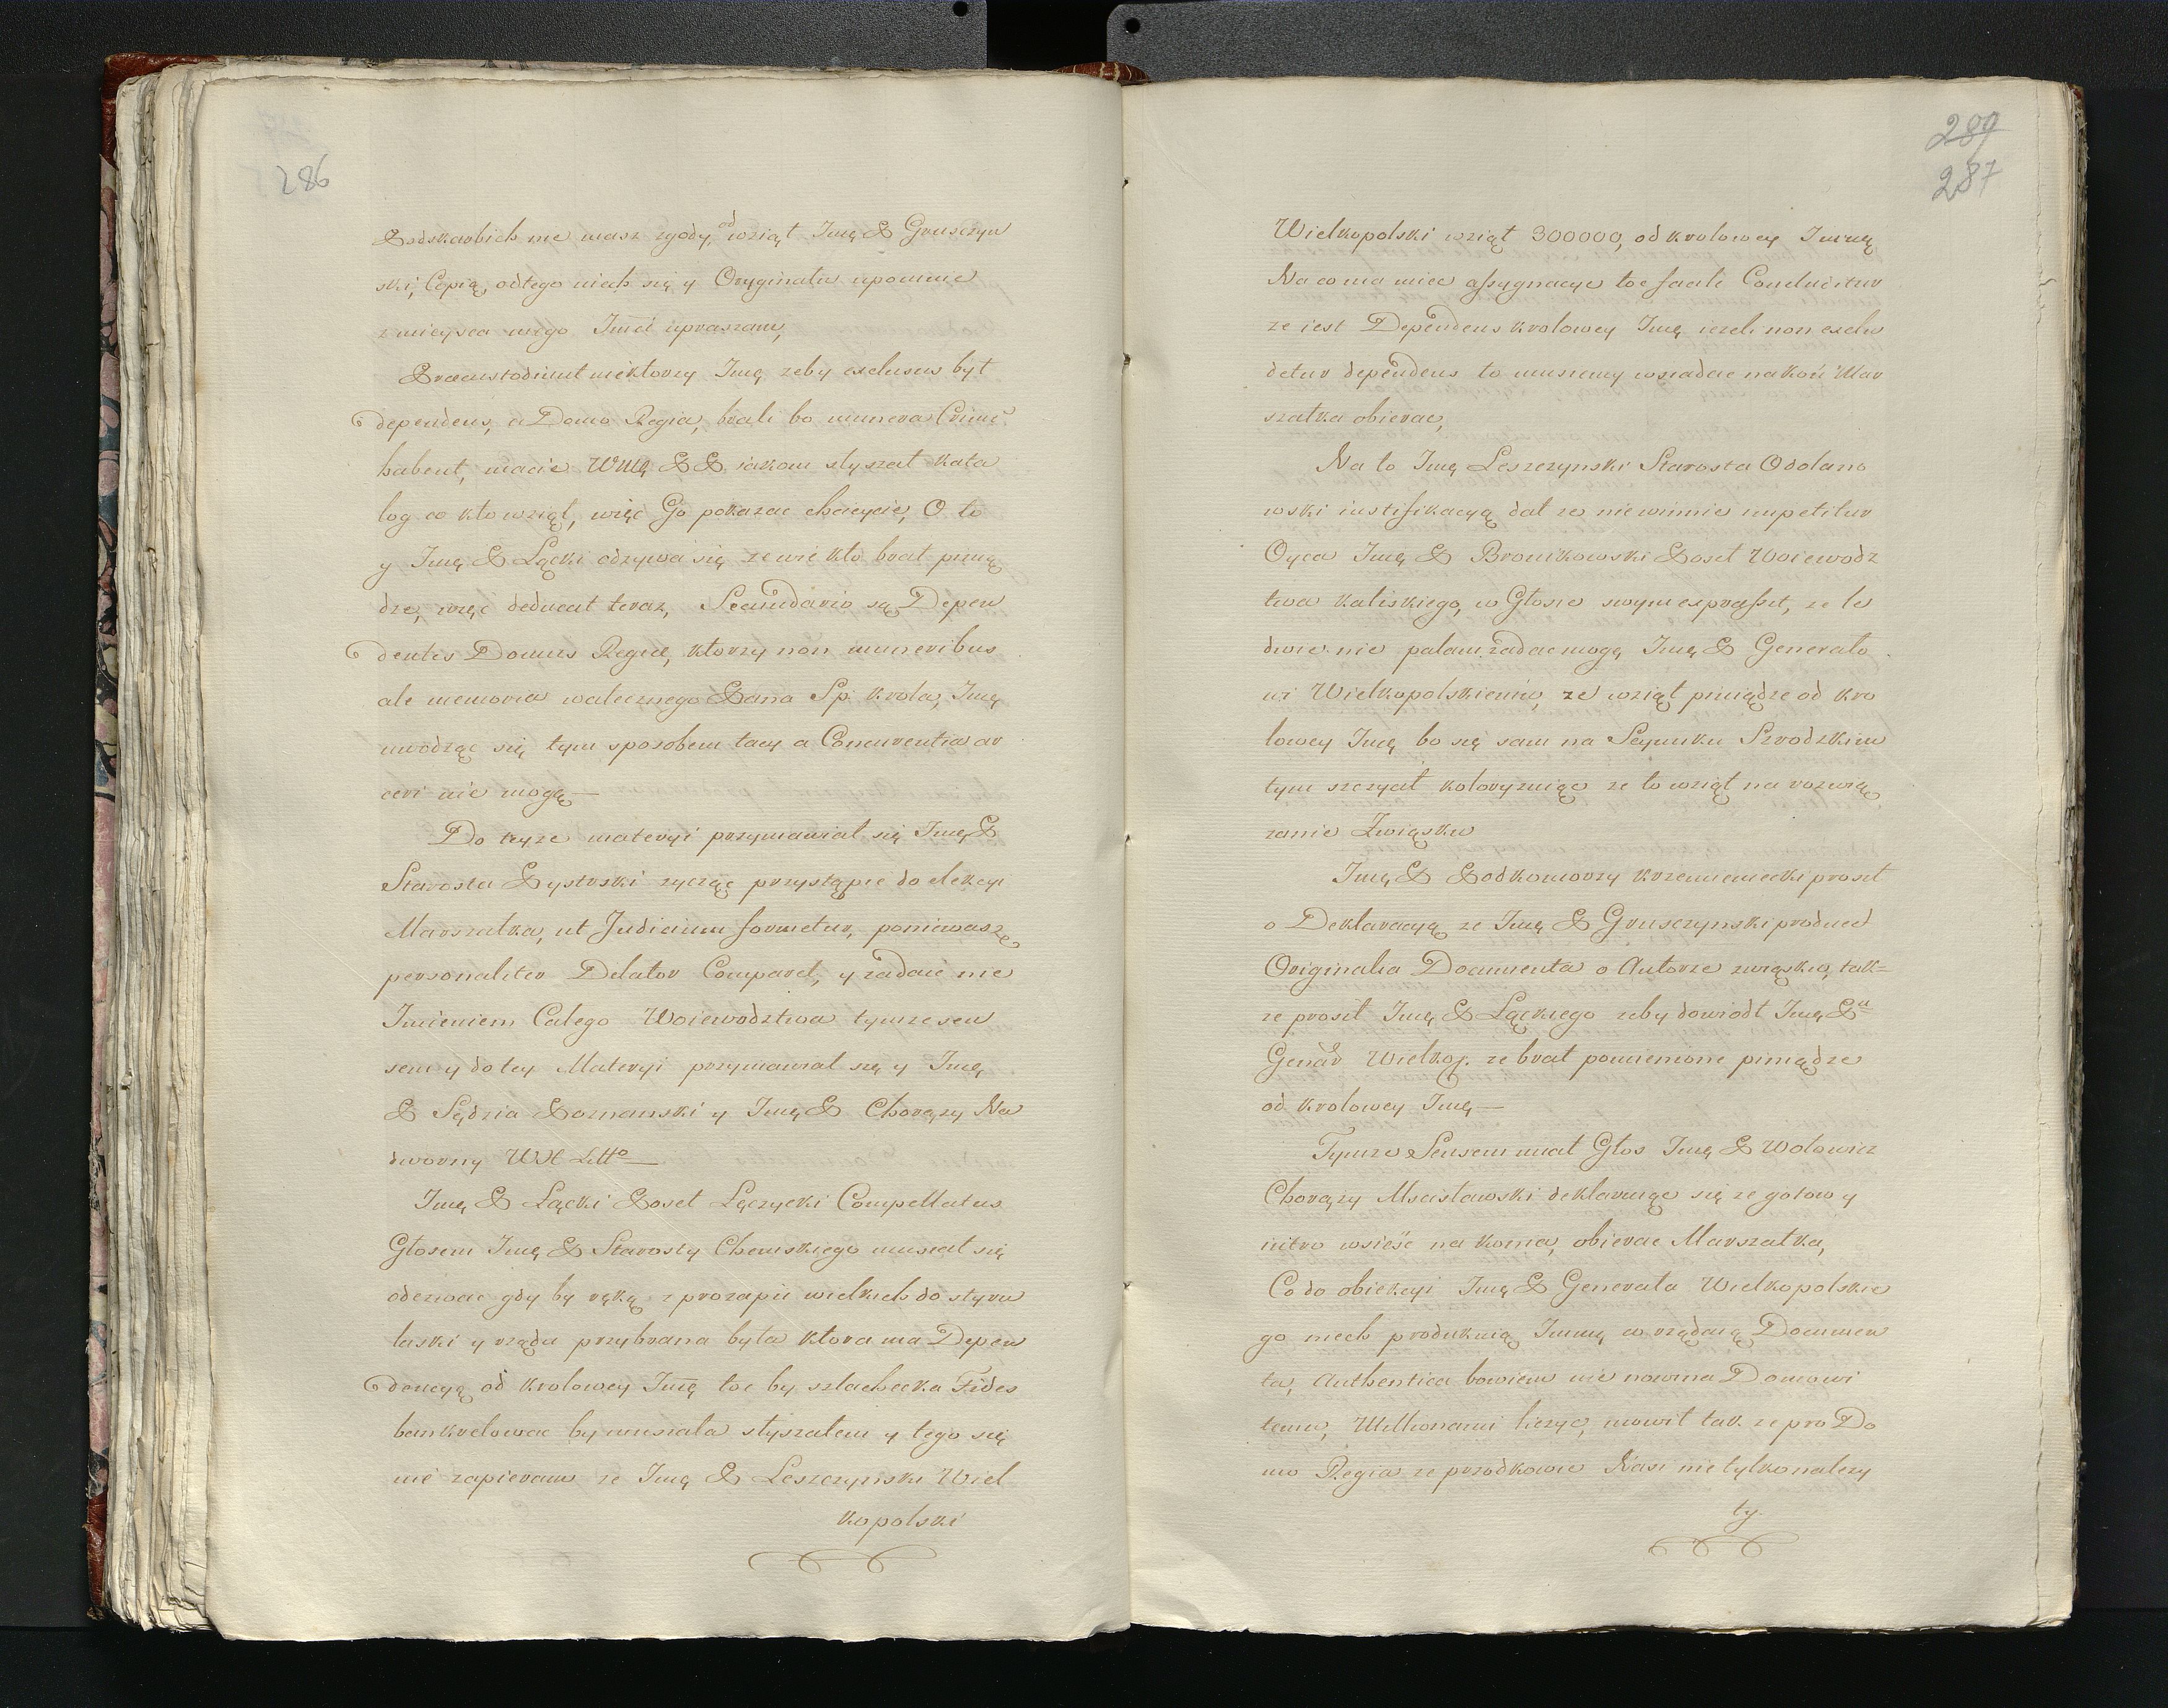 286
Podskarbich nie masz zgody, od wziął Jmę P Grusczyn
ski, Copią, odtego niech się y Oryginału upomnie
z mieysca mego Jmći upraszam,
Praecustodiunt niektorzy Jmę zeby exclusus był
dependens, a Domo Regia, brali bo munera Crimē
habent, macie WMę PP iakom słyszał Kata
log co kto wziął, więć Go pokazac chcieycie, O to
y Jmę P Łącki odzywa się ze wie kto brał pinią
dze, więć deducat teraz, Secundario są Depen
dentes Domus Regiæ, ktorzy non muneribus
ale memoria walecznego Pana Sp. Krola, Jmę
uwodząc się tym sposobem tacy a Concurentia ar
ceri nie mogą —
Do teyze materyi przymawiał się Jmę P
Starosta Bystrski zycząc przystąpic do elekcyi
Marszałka, ut Judicium formetur, poniewasz
personaliter Delator Comparet, y zadaie nie
Jmieniem Całego Woiewodztwa tymze sen
sem y do tey Materyi przymawiał się y Jmę
P Sędzia Poznanski y Jmę P Chorązy Na
dworny WX Litto —
Jmę P Łącki Poseł Łęczycki Compellatus
Głosem Jmę P Starosty Chemskiego musiał się
odezwac gdy by ręką z prozapii wielkich do styru
laski y rządu przybrana była ktora ma Depen
dencyą od krolowey Jmę toc by szlachecka Fides
bankretowac by musiała słyszałem y tego się
nie zapieram ze Jmę P Leszczynski Wiel
kopolski
289
287
Wielkopolski wziął 300000, od krolowey Jmmę
Na co ma miec assygnacye toc facili Conducitur
ze iest Dependens krolowey Jmę iezeli non exclu
detur dependens to musiemy wsiadac na koń Mar
szałka obierac,
Na to Jmę Leszczynski Starosta Odolano
wski iustifikacyą dał ze niewinnie impetitur
Oyca Jmę P Bronikowski Poseł Woiewodz
twa Kaliskiego, w Głosie swym expressit, ze le
dwie nie palam zadac mogą Jmę P Generało
wi Wielkopolskiemu, ze wziął piniądze od kro
lowey Jmę bo się sam na Seymiku Srodzkim
tym szczycił koloryzuiąc ze to wziął na rozwią
zanie Związku
Jmę P Podkomorzy Krzemieniecki prosił
o Deklaracyą ze Jmę P Grusczynski producet
Originalia Documenta o Autorze związku, tak=
ze prosił Jmę P Łąckiego zeby dowiodł Jmę Pu
Genār Wielkop. ze brał pomienione piniądze
od krolowey Jmę —
Tymze Sensem miał Głos Jmę P Wołowicz
Chorązy Mscisławski deklaruiąc się ze gotow y
iutro wsieść na konia, obierac Marszałka,
Co do obiekcyi Jmę P Generała Wielkopolskie
go niech produkuią Jmmę co rządaią Documen
ta, Authentica bowiem nie nowina Domowi
temu, Millionami liczyc, mowił tak ze pro Do
mo Regia ze przodkowie Nasi nie tylko nalezy
ty